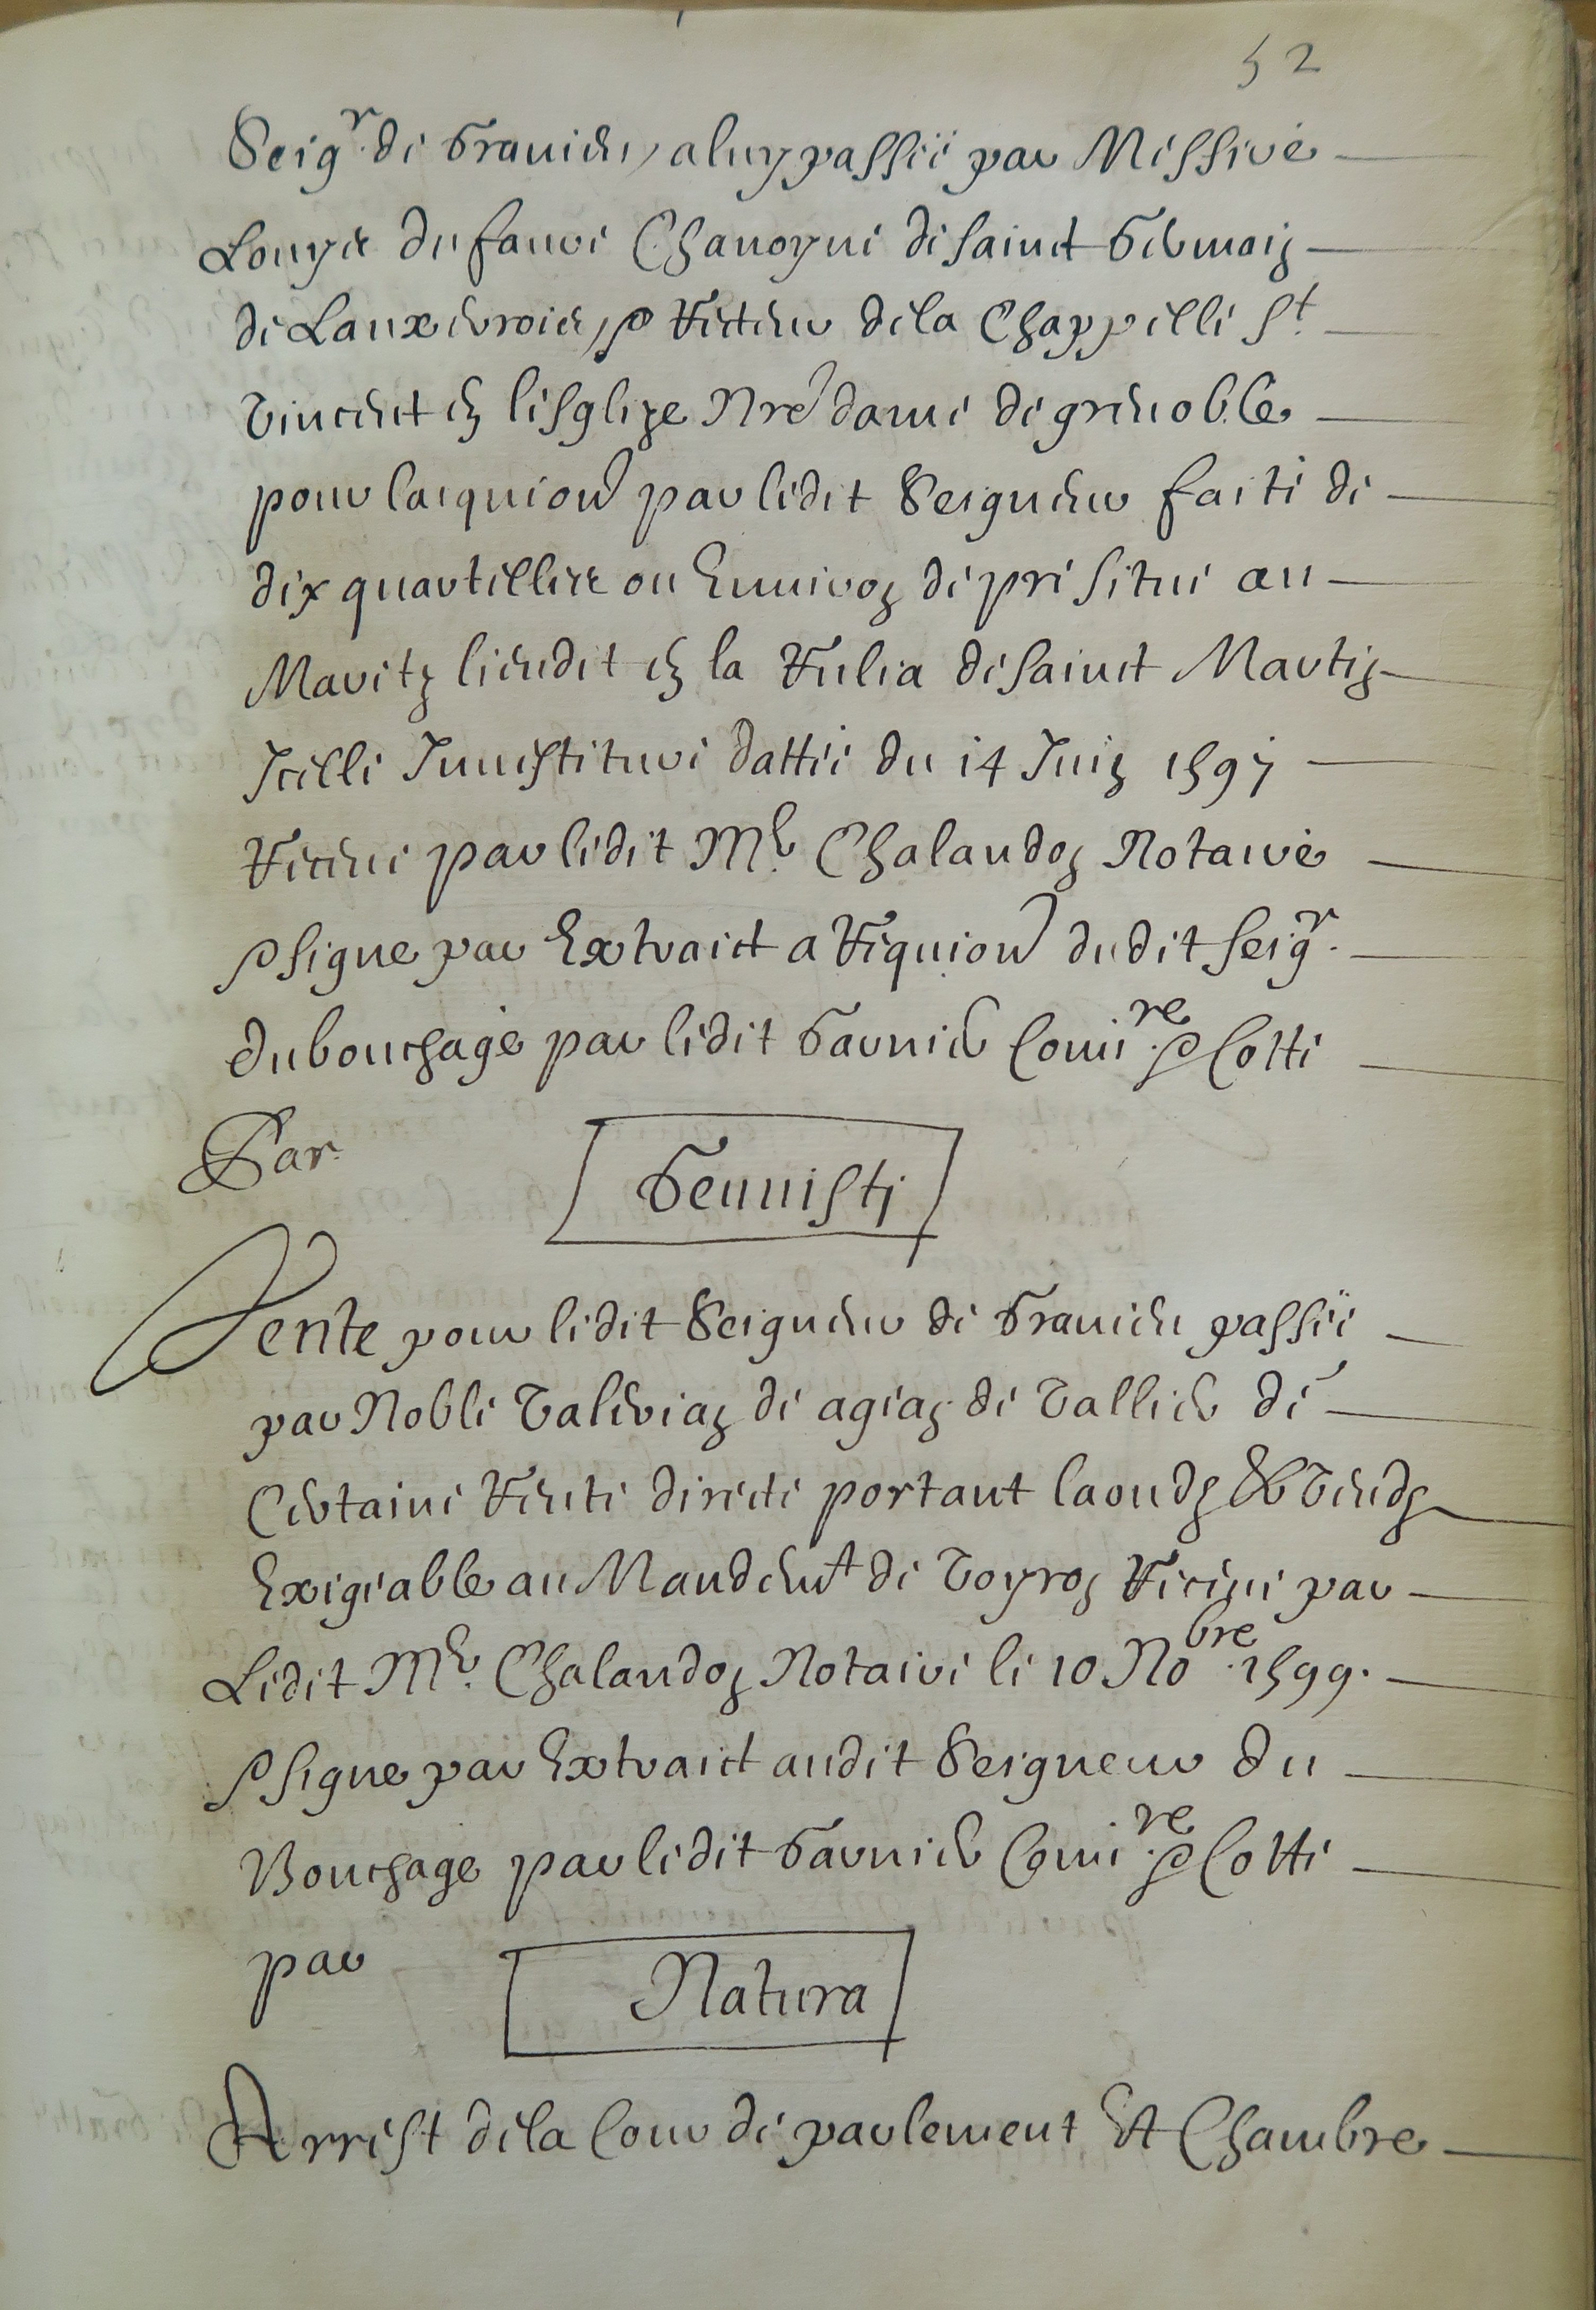 52
Seigr. de Branieu, a luy passée par Messire
Louys du faure Chanoyne de sainct Germain
de Lauxerrois, & Recteur de la Chappelle St.
Vincent en lesglize Nre dame de grenoble
pour lacquison par ledit Seigneur faite de
dix quartellees ou Environ de pré situé au
Maretz lieudit en la Velia de sainct Martin
Icelle Investiture dattée du 14 Juin 1597
Receue par ledit Me. Chalandon Notaire
& signe par Extraict a Requion dudit seigr.
du bouchage par ledit Garnier Comire. & Cotte
Par Gennesty
Vente pour ledit Seigneur de Branieu passée
par Noble Valerian de agian de Vallier de
Certaine Rente directe portant laoudz & Vendz
Exigeable au Mandemt de Veyron Receue par
Ledit Me. Chalandon Notaire le 10 Nobre. 1599.
& signe par Extraict audit Seigneur du
Bouchage par ledit Garnier Comire. & Cotte
par Natura
Arrest de la Cour de parlement Et Chambre